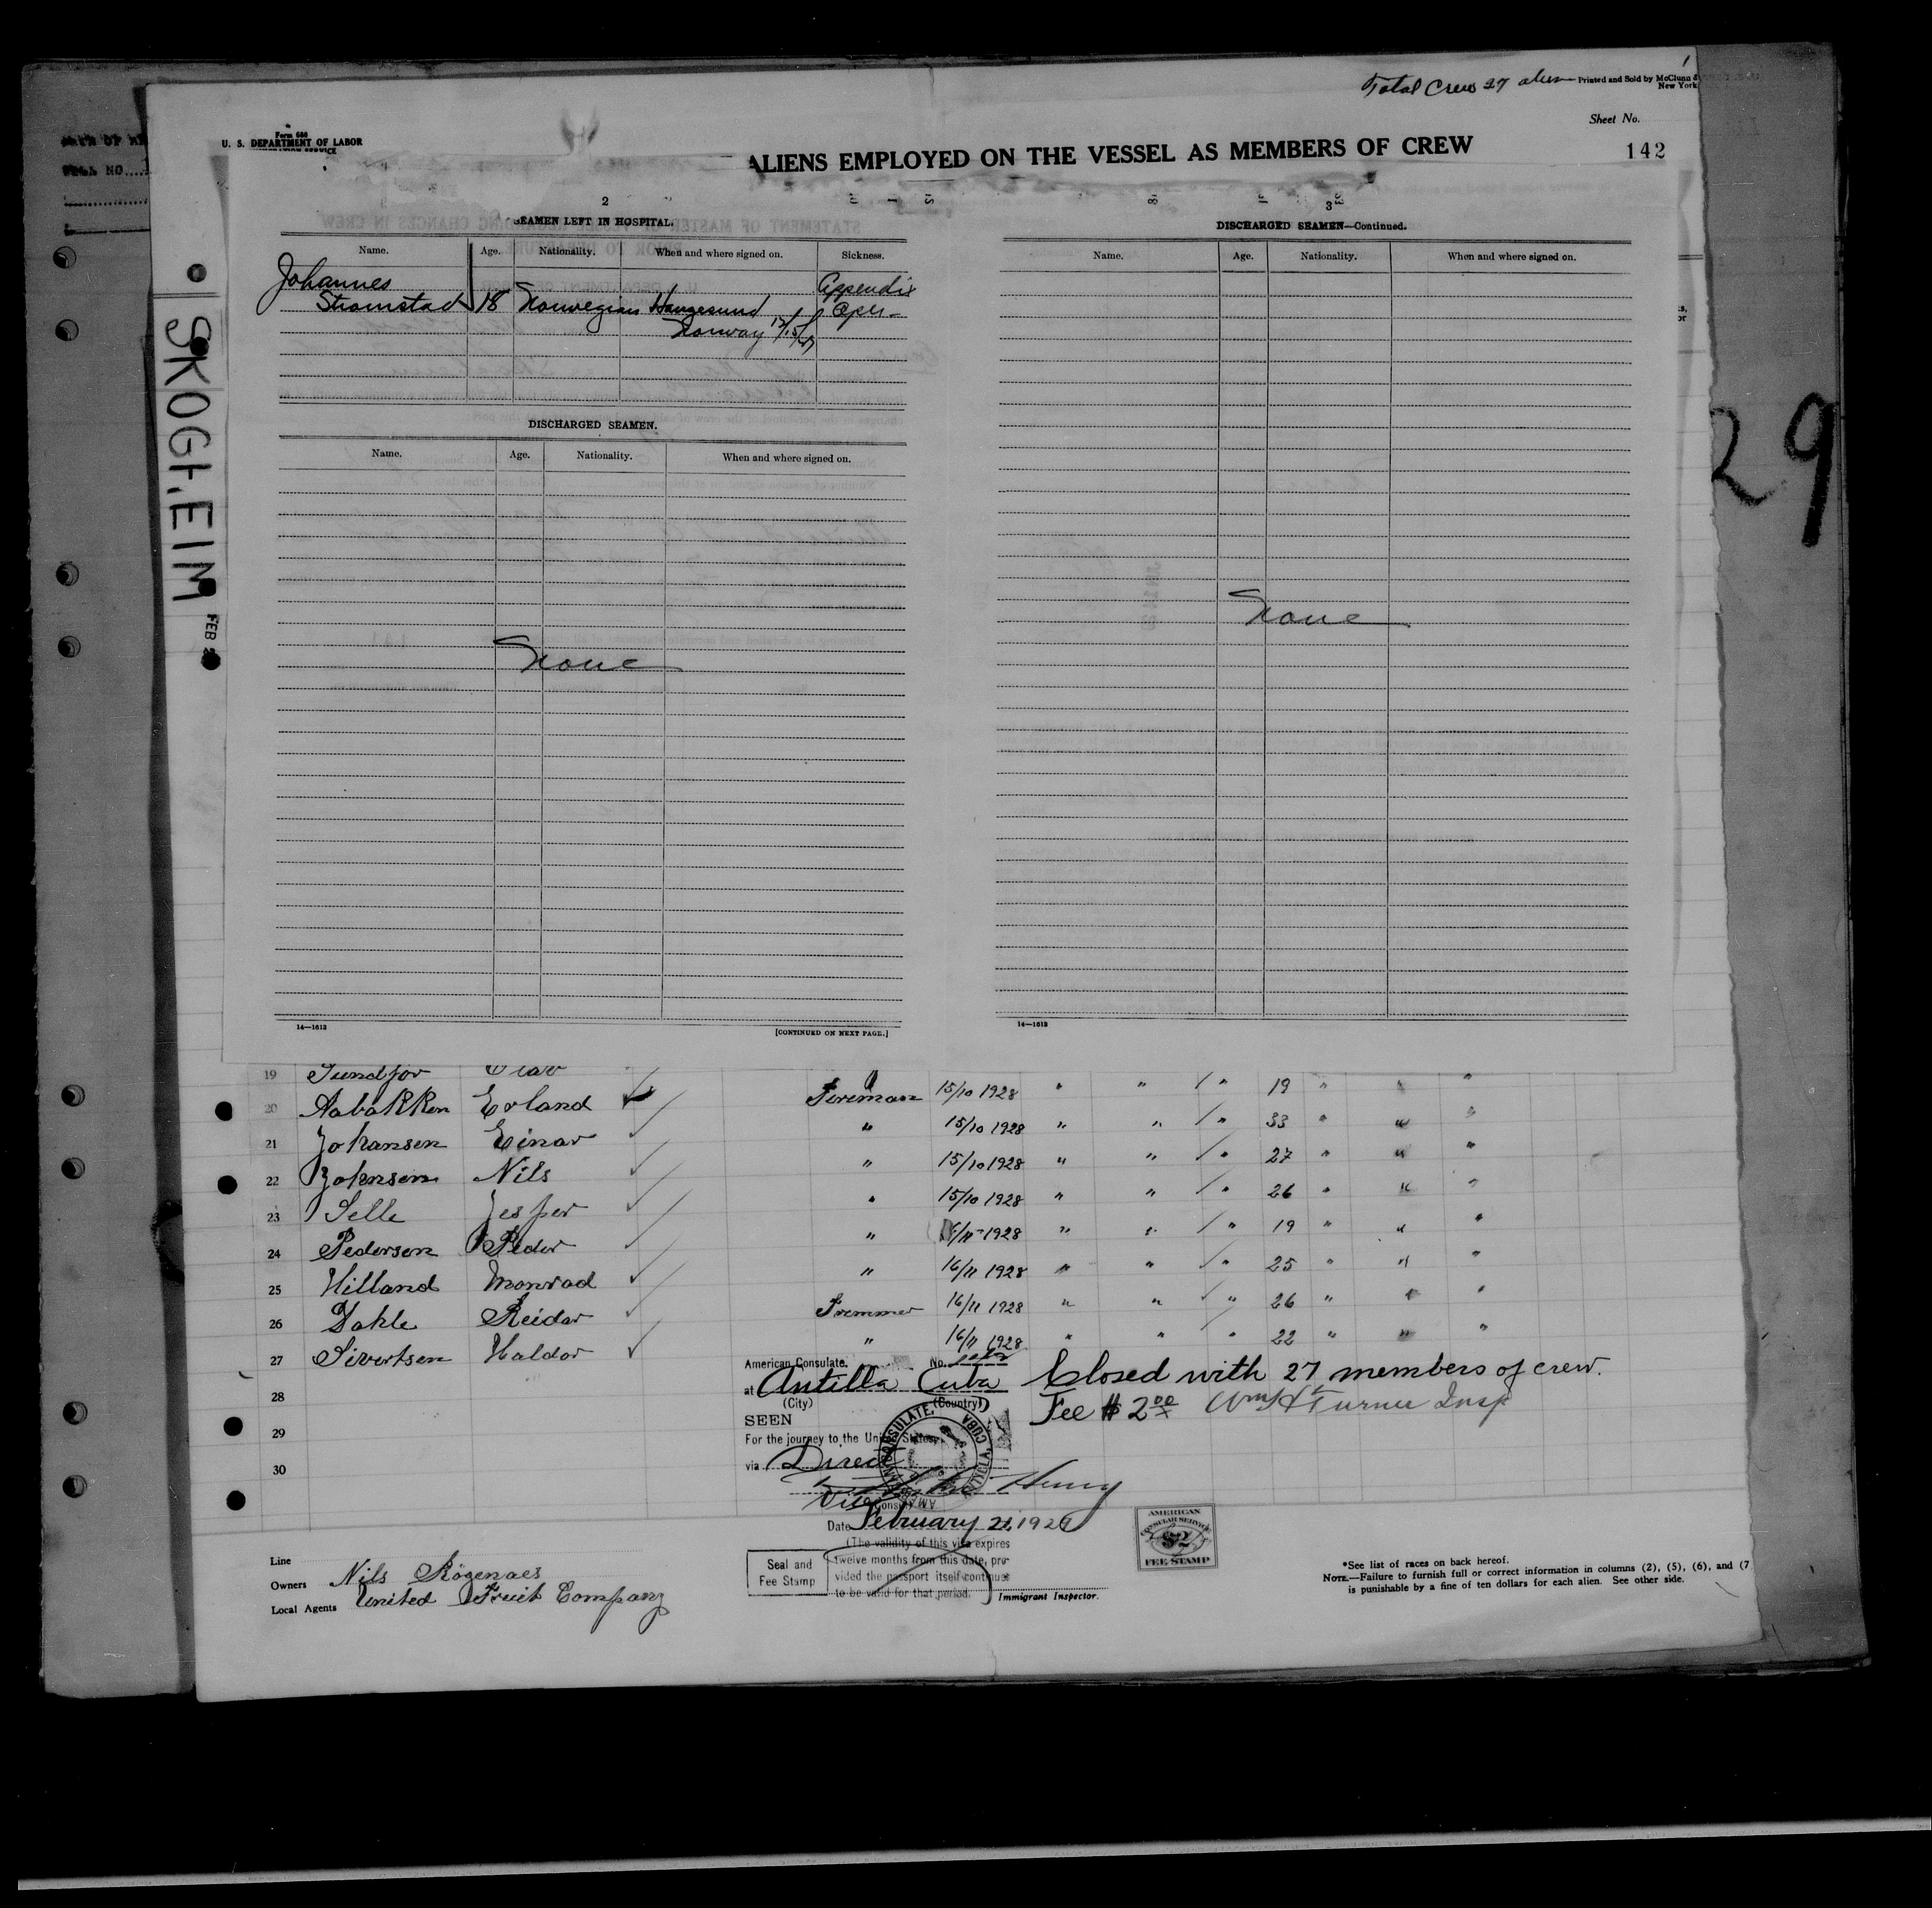 Total Crew 27 alien
Printed and Sold by McClunn &
New York
Form 680
U. S. DEPARTMENT OF LABOR
Sheet No.
142
ALIENS EMPLOYED ON THE VESSEL AS MEMBERS OF CREW
2
SEAMEN LEFT IN HOSPITAL.
Name. Age. Nationality. When and where signed on. Sickness.
Johannes Appendix
Stromstad 18 Norwegian Haugesund Oper-
Norway
DISCHARGED SEAMEN.
Name. Age. Nationality. When and where signed on.
None
14—1613
[CONTINUED ON NEXT PAGE.]
3
DISCHARGED SEAMEN—Continued.
Name. Age. Nationality. When and where signed on.
None
14—1613
SKOGHEIM
FEB
29
19 15/10 1928 " " " 19 " " "
20 Aabakken Erland Fireman 15/10 1928 " " " 33 " " "
21 Johansen Einar " 15/10 1928 " " " 27 " " "
22 Johnsen Nils " 15/10 1928 " " " 26 " " "
23 Selle Jesper " 6/11-1928 " " " 19 " " "
24 Pedersen Peder " 16/11 1928 " " " 25 " " "
25 Hilland Monrad 16/11 1928 " " " 26 " " "
26 Dahle Reidar Tremmer 16/11 1928 " " " 22 " " "
27 Sivertsen Haldor "
28
29
30
American Consulate. No.
at Antilla Cuba
(City) (Country)
SEEN
For the journey to the United States
via Direct
Vice Consul
Date February 21, 1929
(The validity of this visa expires
twelve months from this date, pro-
vided the passport itself continues
to be valid for that period.)
Seal and
Fee Stamp
Immigrant Inspector.
Closed with 27 members of crew.
Fee $ 2 00 Wm H Turner Insp
AMERICAN
CONSULAR SERVICE
$2
FEE STAMP
Line
Owners Nils Rögenaes
Local Agents United Fruit Company
*See list of races on back hereof.
NOTE.—Failure to furnish full or correct information in columns (2), (5), (6), and (7
is punishable by a fine of ten dollars for each alien. See other side.